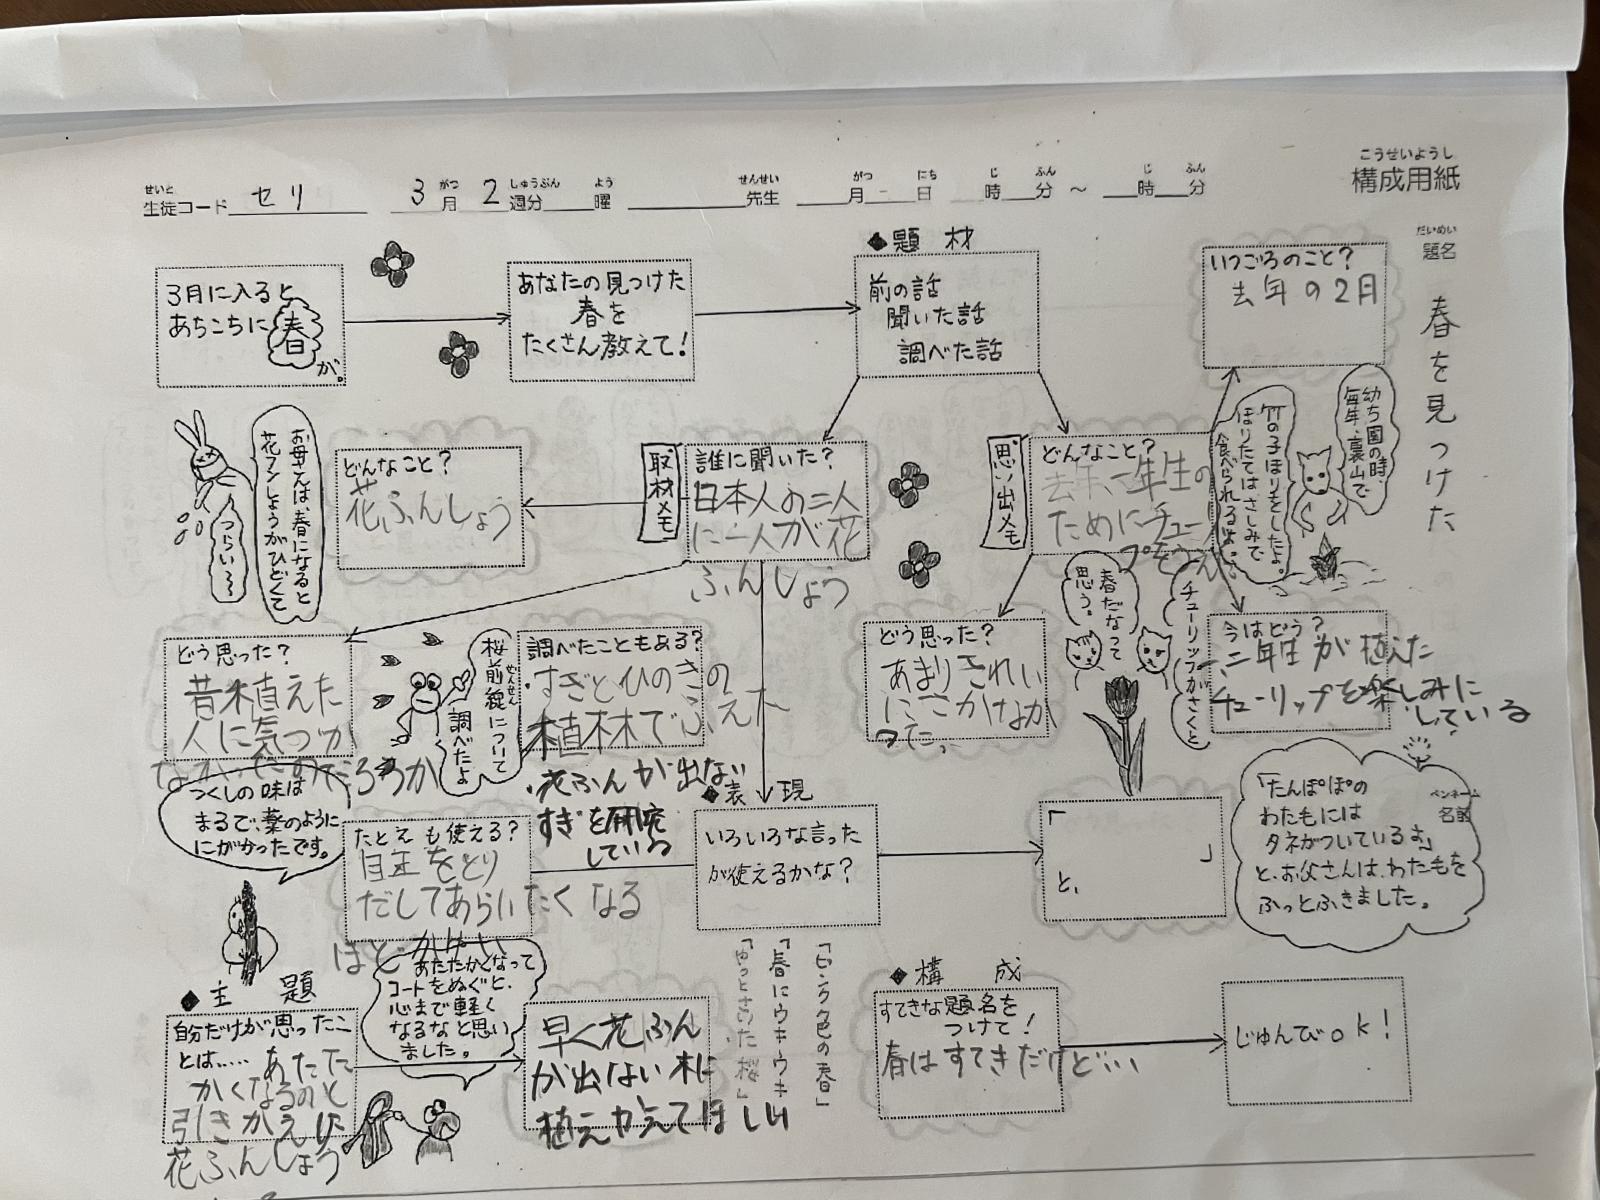 こうせいようし
構成用紙
せいと
生徒コード セリ
がつ しゅうぶん よう
3月 2週分 曜
せんせい
先生
がつ にち じ ふん じ ふん
月 日 時 分 ～ 時 分
だいめい
題名
春を見つけた
3月に入ると
あちこちに春
が。
あなたの見つけた
春を
たくさん教えて！
◆題材
前の話
聞いた話
調べた話
いつごろのこと？
去年の2月
お母さんは、春になると
花フンしょうがひどくて
つらい～
どんなこと？
花ふんしょう
取材メモ
誰に聞いた？
日本人の二人
に一人が花
ふんしょう
思い出メモ
どんなこと？
去年、一年生の
ためにチューリ
幼ち園の時
毎年、裏山で
竹の子ほりをしたよ。
ほりたてはさしみで
食べられるよ。
どう思った？
昔植えた
人に気づか
なかったのだろうか
桜前線について
ぜんせん
調べたよ
調べたこともある？
・すぎとひのきの
植林でふえた
・花ふんが出ない
すぎを研究
している
どう思った？
あまりきれい
にさかなか
った
春だなって
思う。
チューリップがさくと
今はどう？
一、二年生が植えた
チューリップを楽しみに
している
つくしの味は
まるで、薬のように
にがかったです。
たとえも使える？
目玉をとり
だしてあらいたくなる
ほどかゆい
◆表現
いろいろな言った
が使えるかな？
「
」
と、
ペンネーム
名前
「たんぽぽの
わたもには
タネがついているよ」
と、お父さんは、わた毛を
ふっとふきました。
「ピンク色の春」
「春にウキウキ」
「ゆっとさいた桜」
◆主題
自分だけが思ったこ
とは……あたた
かくなるのと
引きかえに
花ふんしょう
あたたかくなって
コートをぬぐと、
心まで軽く
なるなと思い
ました。
早く花ふん
が出ない木に
植えかえてほしい
◆構成
すてきな題名を
つけて！
春はすてきだけど…
じゅんびok！